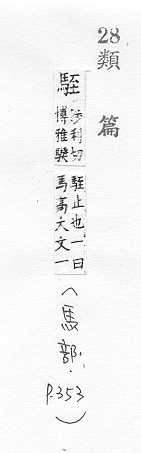 28
類篇
駤 陟利切
博雅騤
駤止也一曰
馬高大文一
(馬部. P.353)